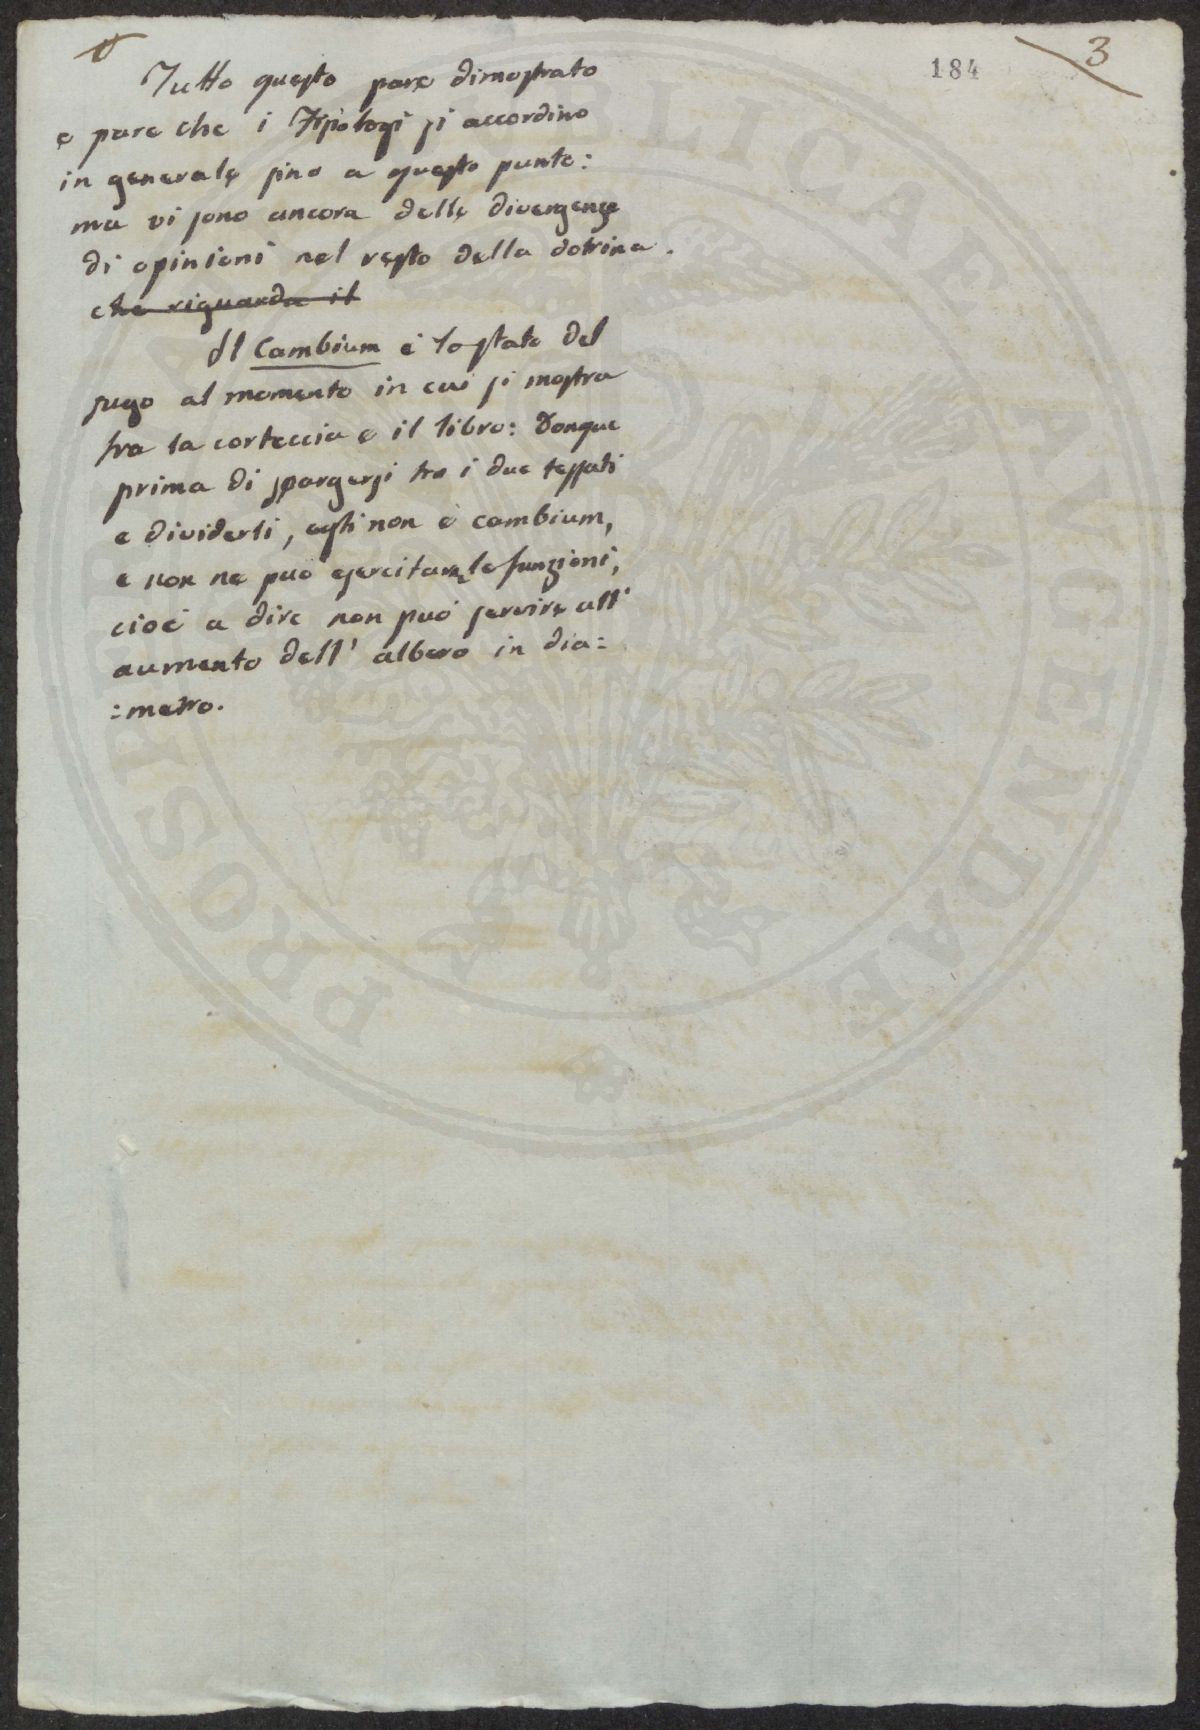 184
3
Tutto questo pare dimostrato
e pare che i Fisiologi si accordino
in generale sino a questo punto:
ma vi sono ancora delle divergenze
di opinioni nel resto della dotrina.
che riguarda il
Il Cambium è lo stato del
sugo al momento in cui si mostra
tra la corteccia e il libro: Donque
prima di spargersi tra i due tessuti
e dividerli, egli non è cambium,
e non ne può esercitare le funzioni,
cioè a dire non può servire all'
aumento dell' albero in dia:
:metro.
PROSPERITATI PUBLICAE AUGENDAE